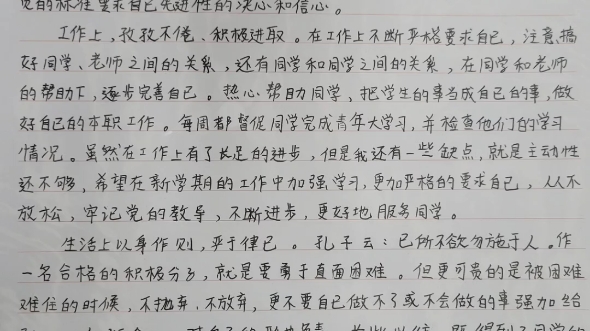 党的标准要求自己先进性的决心和信心。
工作上，孜孜不倦、积极进取。在工作上不断严格要求自己，注意搞
好同学、老师之间的关系，还有同学和同学之间的关系，在同学和老师
的帮助下，逐步完善自己。热心帮助同学，把学生的事当成自己的事，做
好自己的本职工作。每周都督促同学完成青年大学习，并检查他们的学习
情况。虽然在工作上有了长足的进步，但是我还有一些缺点，就是主动性
还不够，希望在新学期的工作中加强学习，更加严格的要求自己，从不
放松，牢记党的教导，不断进步，更好地服务同学。
生活上以身作则，严于律己。孔子云：己所不欲勿施于人。作
一名合格的积极分子，就是要勇于直面困难。但更可贵的是被困难
难住的时候，不抛弃、不放弃，更不要自己做不了或不会做的事强加给